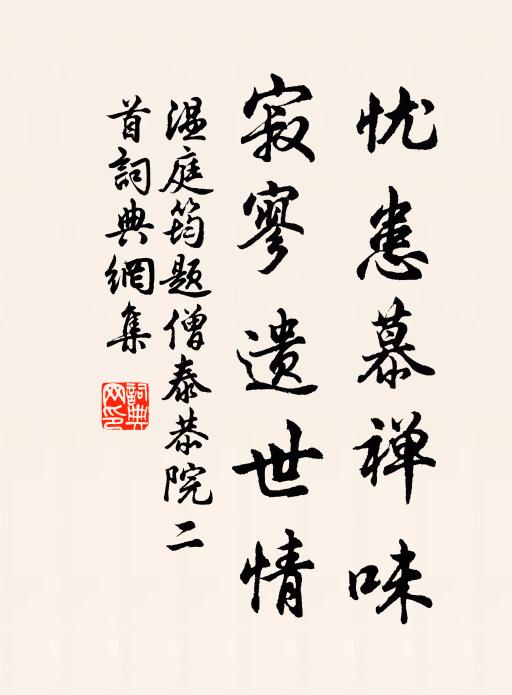 忧患慕禅味
寂寥遗世情
温庭筠题僧泰恭院二
首詞典網集
詞典
网印